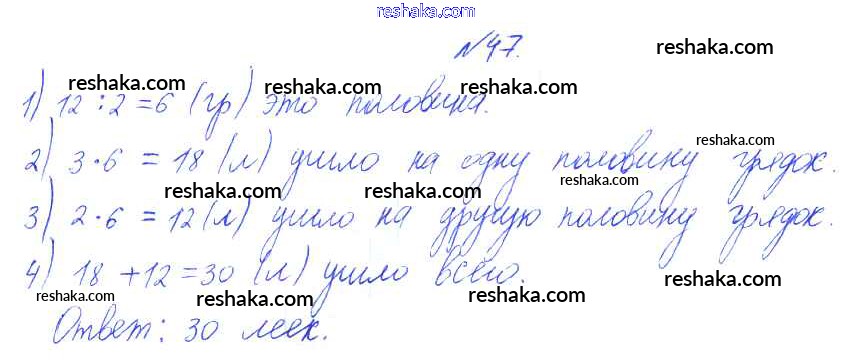 reshaka.com
№47.
reshaka.com
reshaka.com
reshaka.com
1) 12 : 2 = 6 (гр) это половина.
reshaka.com
reshaka.com
2) 3 · 6 = 18 (л) ушло на одну половину грядок.
reshaka.com
reshaka.com
reshaka.com
3) 2 · 6 = 12 (л) ушло на другую половину грядок.
4) 18 + 12 = 30 (л) ушло всего.
reshaka.com
reshaka.com
reshaka.com
reshaka.com
Ответ: 30 леек.